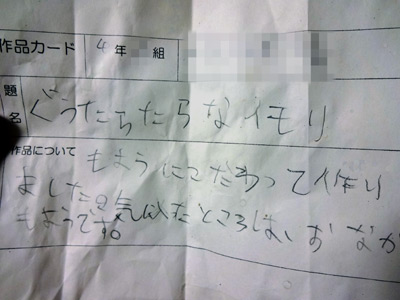 作品カード 4年 組
題名 ぐうたらたらなイモリ
作品について もようにこだわって作り
ました。気に入ったところは、おなか
もようです。